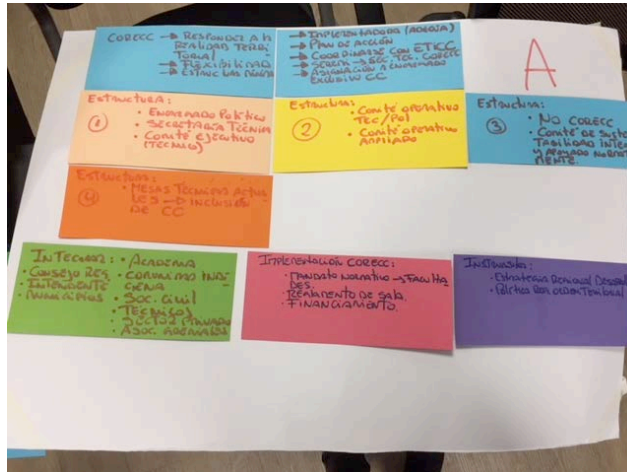 CORECC → RESPONDER A LA
REALIDAD TERRI
TORIAL
→ FLEXIBILIDAD
→ ESTRUCTURA
→ IMPLEMENTADORA
→ PLAN DE ACCIÓN
→ COORDINARSE CON ETICC
→ SEREMI → SEC. TEC. CORECC
→ ASIGNACIÓN
EXCLUSIVO CC
A
ESTRUCTURA:
①
• ENCARGADO POLÍTICO
• SECRETARÍA TÉCNICA
• COMITÉ EJECUTIVO
(TÉCNICO)
ESTRUCTURA:
②
• COMITÉ OPERATIVO
TEC/POL
• COMITÉ OPERATIVO
AMPLIADO
ESTRUCTURA:
③
• NO CORECC
• COMITÉ DE SUSTEN
TABILIDAD
Y APOYADO NORMATIVA
MENTE.
ESTRUCTURA:
④
• MESAS TÉCNICAS ACTUA
LES → INCLUSIÓN
DE CC
INTEGRAR:
• CONSEJO REG.
• INTENDENTE
• MUNICIPIOS
• ACADEMIA
• COMUNIDAD INDÍ
GENA
• SOC. CIVIL
• TÉCNICOS
• SECTOR PRIVADO
• ASOC. GREMIALES
IMPLEMENTACIÓN CORECC:
• MANDATO NORMATIVO → FACULTA
DES.
• REGLAMENTO DE SALA.
• FINANCIAMIENTO.
• ESTRATEGIA REGIONAL
TERRITORIAL